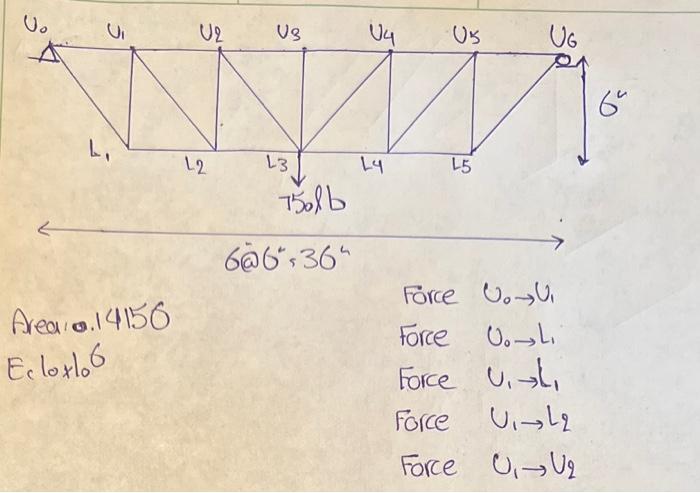 U₀ U₁ U₂ U₃ U₄ U₅ U₆
6"
L₁ L₂ L₃ L₄ L₅
750lb
6@6"=36"
Force U₀→U₁
Area: 0.14156
Force U₀→L₁
E = 10x10⁶
Force U₁→L₁
Force U₁→L₂
Force U₁→U₂